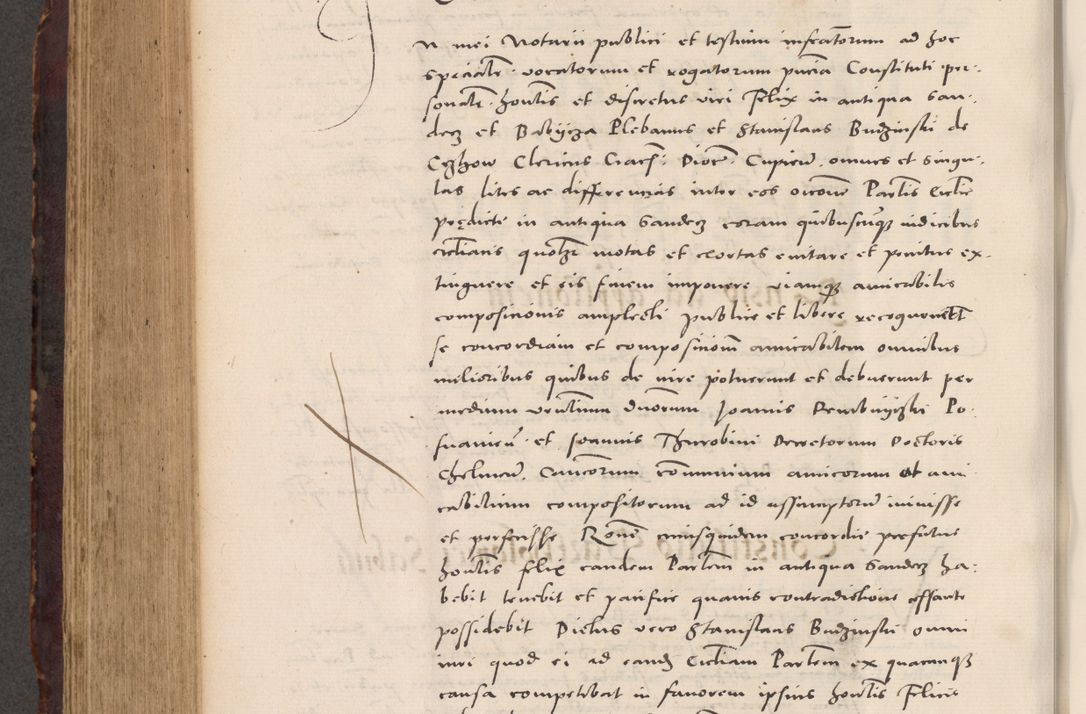 n mei Notarii publici et testium infratorum ad hoc
specialr. vocatorum et rogatorum pncia Constituti per-
sonalr. honlis et discretus viri Felix in antiqua San-
decz et Babycza Plebanus et Stanislaus Budzinski de
Clericus Cracf. Dioc. Cupien. omnes et singu-
las lites ac differencias inter eos Parlis
predicte in antiqua Sandecz coram quibuscuqz iudicibus
motas et exortas evitare et penitus ex-
tinguere et eis finem imponere viamqz amicabilis
compositionis amplecti publice et libere recognoverut
se concordiam et composicionem amicabilem omnibus
melioribus quibus de iure potuerunt et debuerunt per
medium duorum Joannis Po-
snanien et Joannis Thurobini Decretorum Doctoris
Chelmen. Canicorum communium amicorum et ami
cabilium compositorum ad id assumptoru iniisse
et perfecisse Rone cuiusquidem concordie prefatus
honlis felix eandem Parlem in antiqua Sandecz ha-
bebit tenebit et pacifice quavis contradictione cessante
possidebit Dictus vero Stanislaus Budzinski omni
iuri quod ei ad eand Parlem ex quacunqz
causa competebat in favorem ipsius honlis Felicis